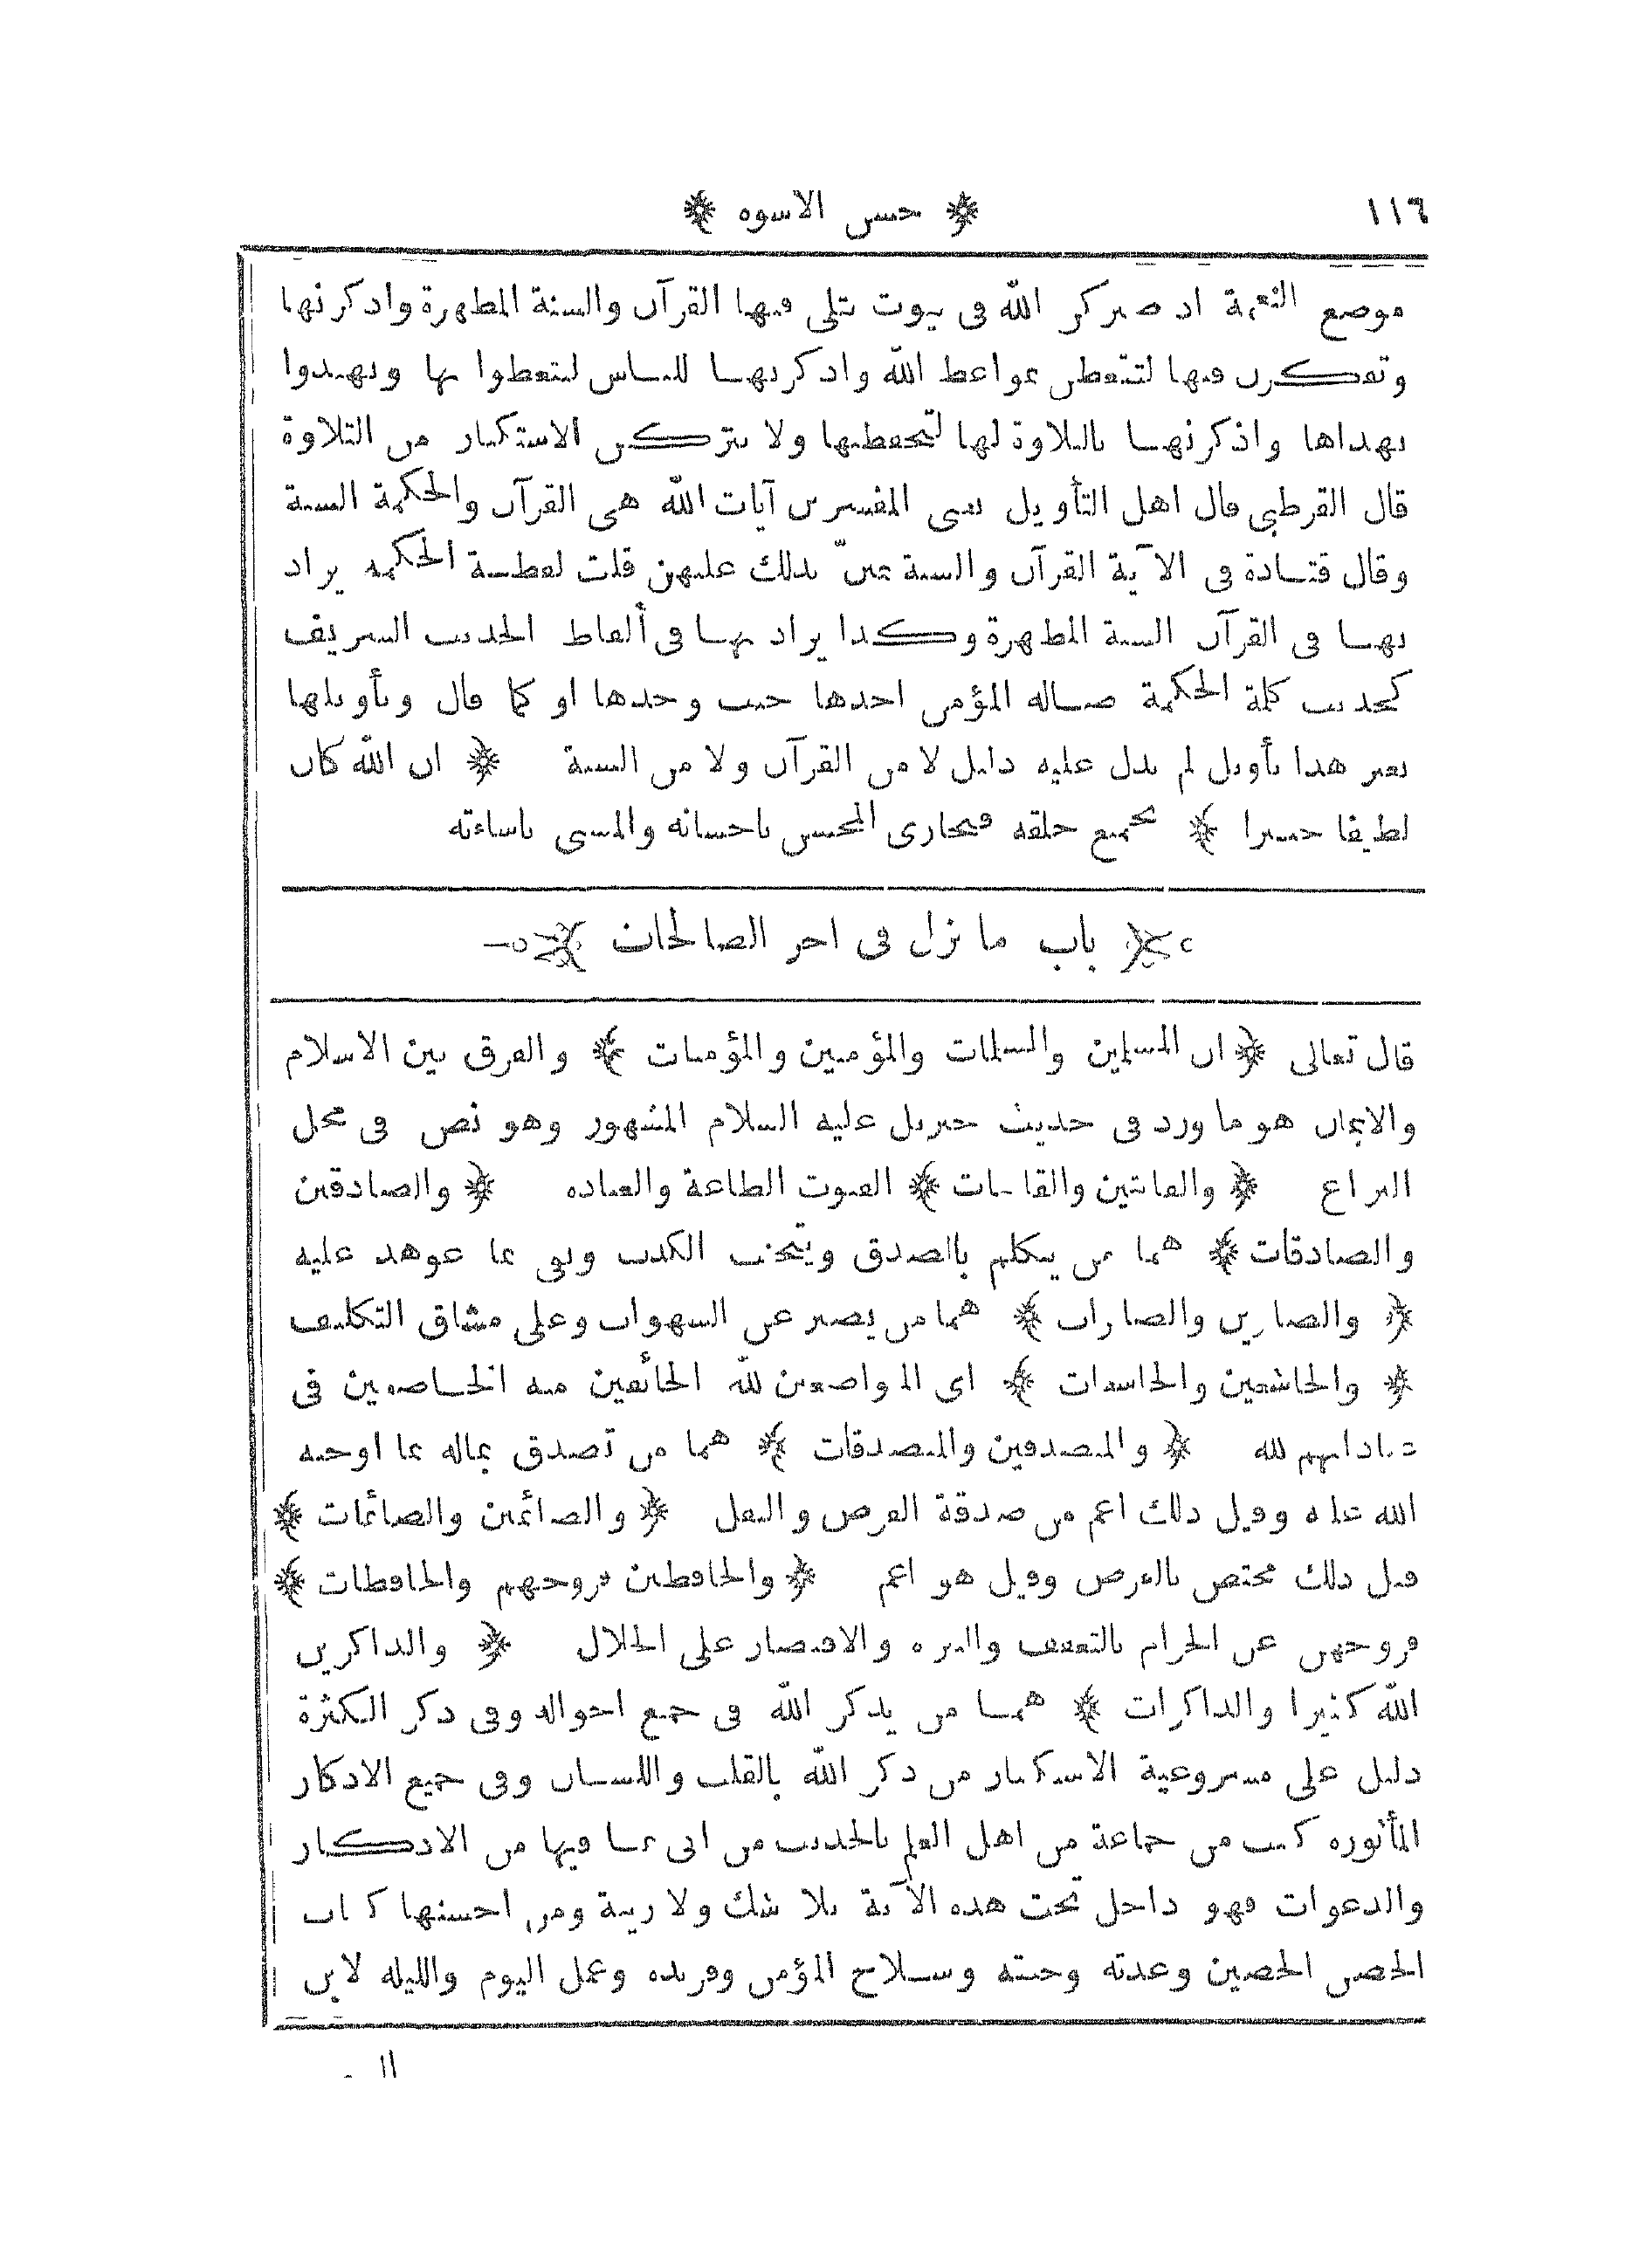 ١١٦ ﴿ حسن الاسوه ﴾
موضع النعمة اذ صيركن الله فى بيوت يتلى فيها القرآن والسنة المطهرة واذكرنها
وتفكرن فيها لتتعظن بمواعظ الله واذكرنهـا للنـاس ليتعظوا بها ويهتدوا
بهداها واذكرنهـا بالتلاوة لها لتحفظنها ولا تتركن الاستكثار من التلاوة
قال القرطبى قال اهل التأويل يعنى المفسرين آيات الله هى القرآن والحكمة السنة
وقال قتـادة فى الآية القرآن والسنة يمتنّ بذلك عليهن قلت لفظـة الحكمه يراد
بهـا فى القرآن السنة المطهرة وكذا يراد بهـا فى ألفاظ الحديث الشريف
كحديث كلمة الحكمة ضـاله المؤمن اخذها حيث وجدها او كما قال وتأويلها
بغير هذا تأويل لم يدل عليه دليل لا من القرآن ولا من السنة ﴿ ان الله كان
لطيفا خبيرا ﴾ بجميع خلقه فيجازى المحسن باحسانه والمسى باساءته
باب ما نزل فى اجر الصالحات
قال تعالى ﴿ ان المسلمين والمسلمات والمؤمنين والمؤمنات ﴾ والفرق بين الاسلام
والايمان هو ما ورد فى حديث جبريل عليه السلام المشهور وهو نص فى محل
النزاع ﴿ والقانتين والقانتات ﴾ القنوت الطاعة والعباده ﴿ والصادقين
والصادقات ﴾ هما من يتكلم بالصدق ويتجنب الكذب ويفى بما عوهد عليه
﴿ والصابرين والصابرات ﴾ هما من يصبر عن الشهوات وعلى مشاق التكليف
﴿ والخاشعين والخاشعات ﴾ اى المتواضعين لله الخائفين منه الخـاضعين فى
عباداتهم لله ﴿ والمتصدقين والمتصدقات ﴾ هما من تصدق بماله بما اوجبه
الله عليه وقيل ذلك اعم من صدقة الفرض والنفل ﴿ والصائمين والصائمات ﴾
قيل ذلك مختص بالفرض وقيل هو اعم ﴿ والحافظين فروجهم والحافظات ﴾
فروجهن عن الحرام بالتعفف والتنزه والاقتصار على الحلال ﴿ والذاكرين
الله كثيرا والذاكرات ﴾ همـا من يذكر الله فى جميع احواله وفى ذكر الكثرة
دليل على مشروعية الاستكثار من ذكر الله بالقلب واللسـان وفى جميع الاذكار
المأثوره كتب من جماعة من اهل العلم بالحديث من اتى بمـا فيها من الاذكـار
والدعوات فهو داخل تحت هذه الآية بلا شك ولا ريبة ومن احسنها كتاب
الحصن الحصين وعدته وجنته وسـلاح المؤمن وفريده وعمل اليوم والليله لابن